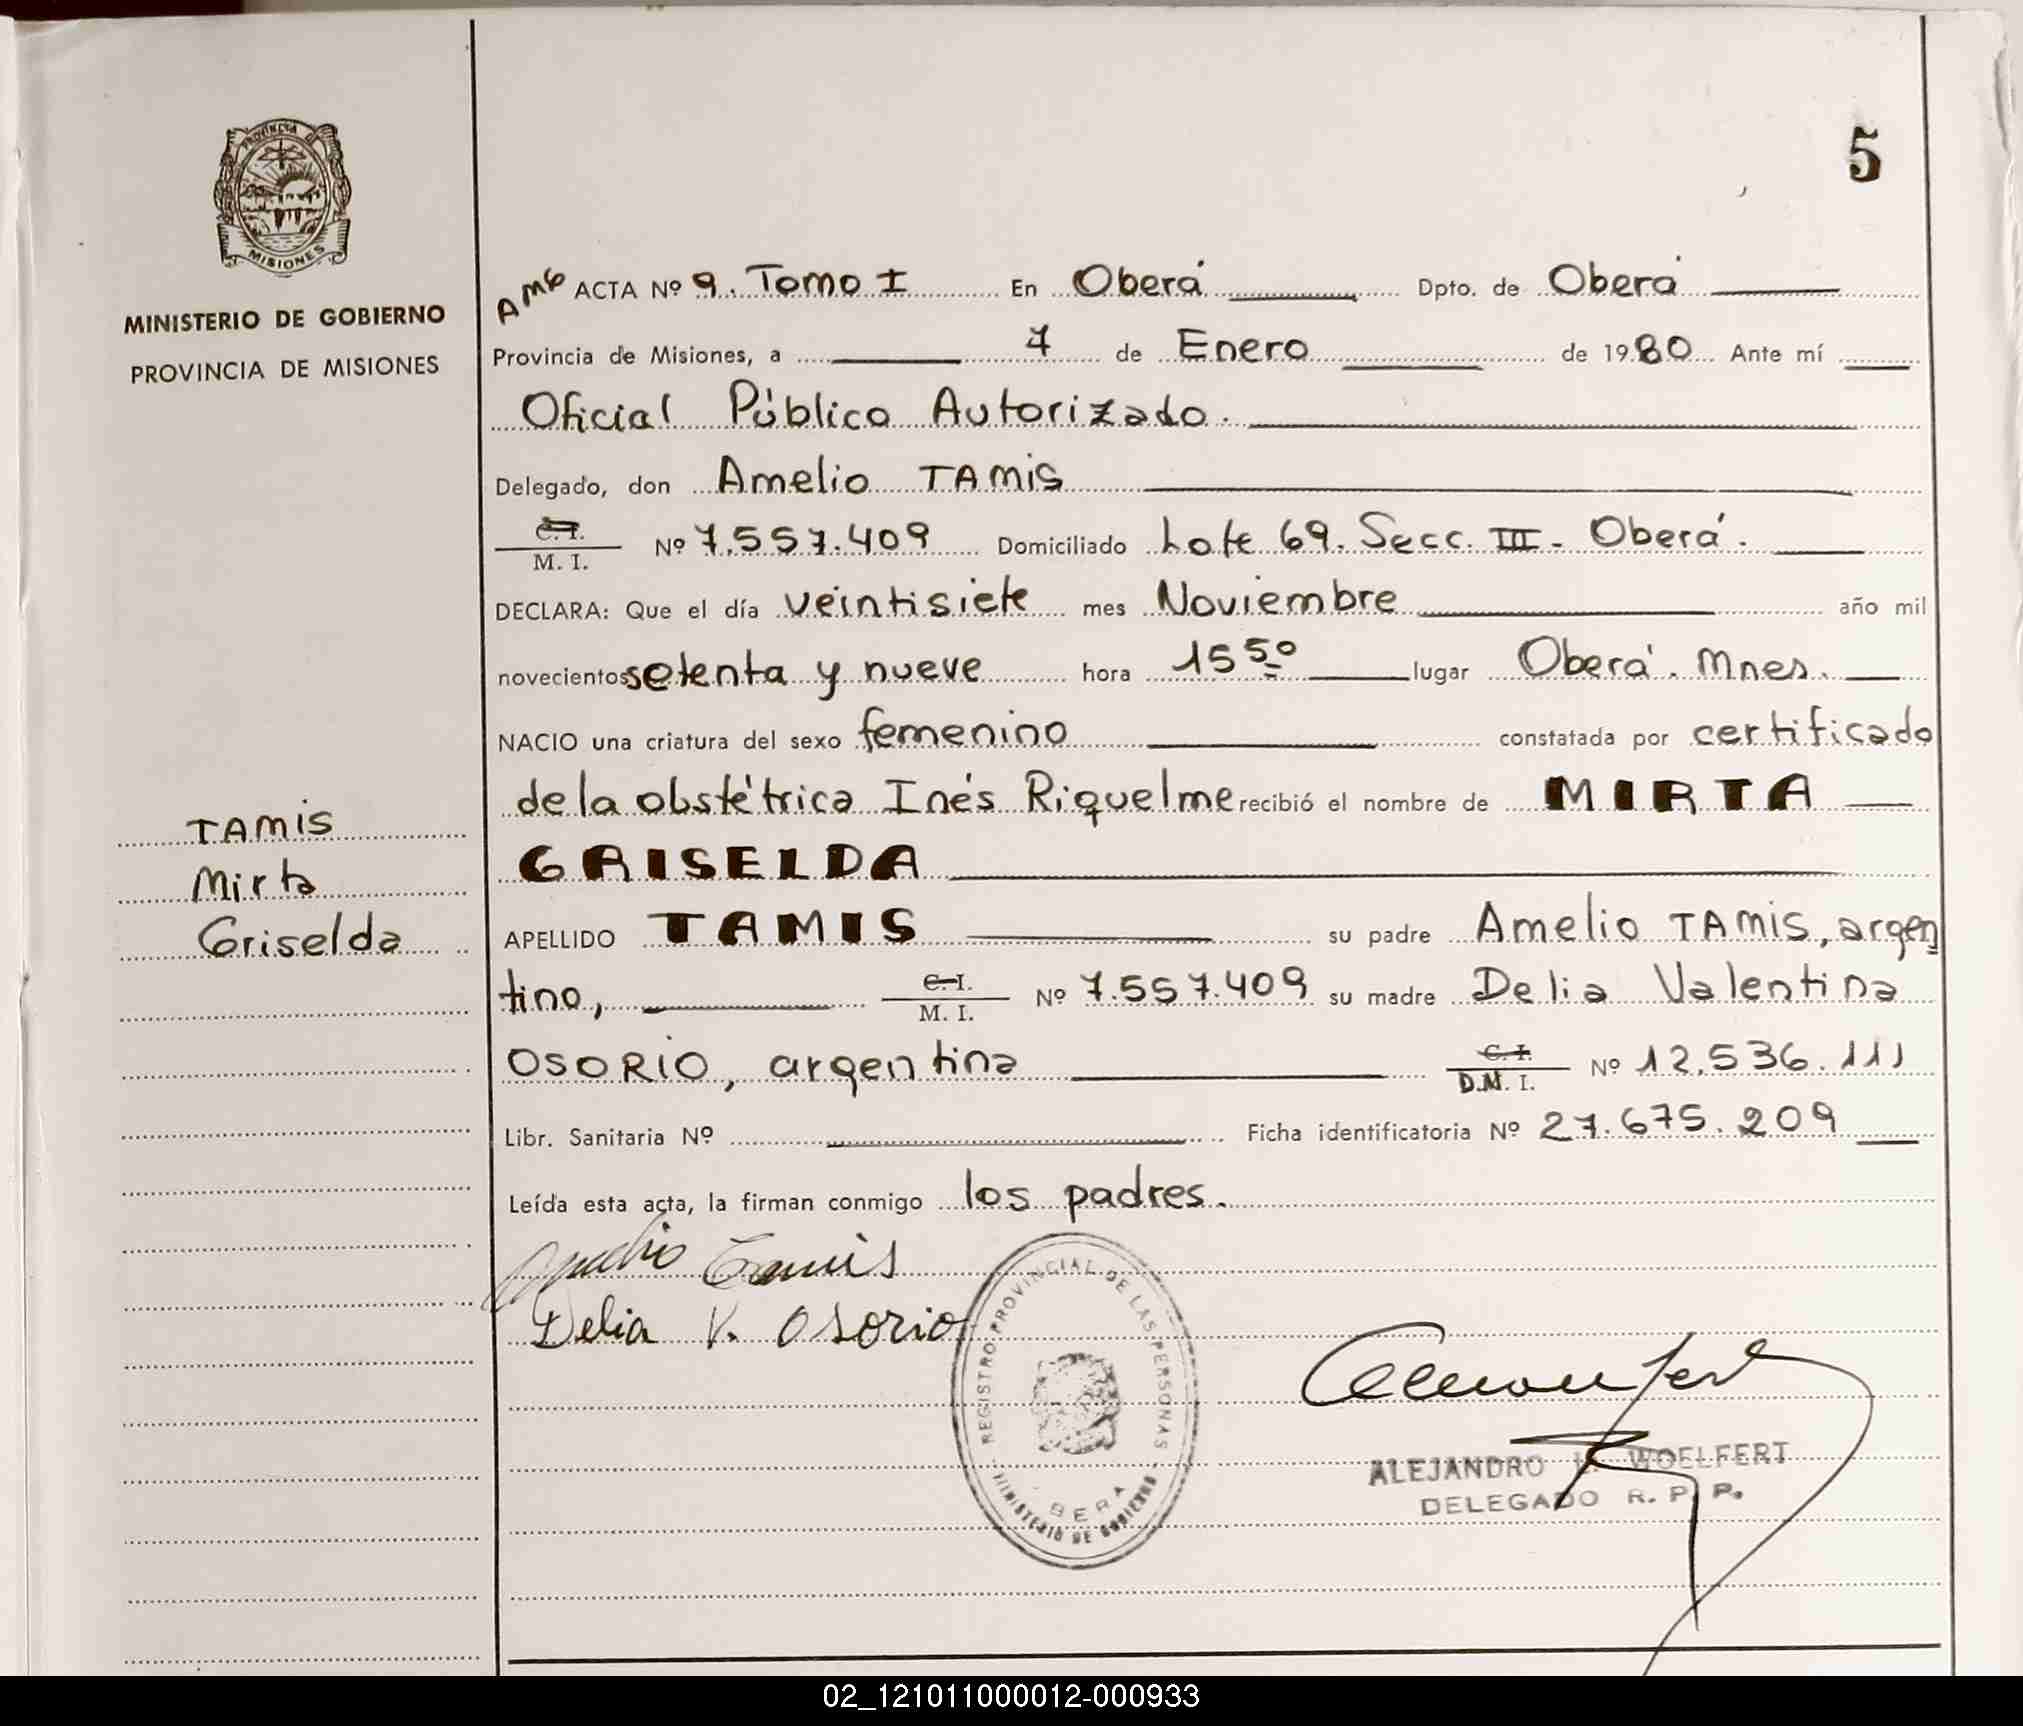 5
PROVINCIA DE
MISIONES
MINISTERIO DE GOBIERNO
PROVINCIA DE MISIONES
TAMIS
Mirta
Griselda
AMG ACTA Nº 9. Tomo I En Oberá Dpto. de Oberá
Provincia de Misiones, a 7 de Enero de 1980 Ante mí
Oficial Público Autorizado.
Delegado, don Amelio TAMIS
C. I.
M. I. Nº 7.557.409 Domiciliado Lote 69. Secc. III - Oberá.
DECLARA: Que el día veintisiete mes Noviembre año mil
novecientos setenta y nueve hora 15 50 lugar Oberá. Mnes.
NACIO una criatura del sexo femenino constatada por certificado
de la obstétrica Inés Riquelme recibió el nombre de MIRTA
GRISELDA
APELLIDO TAMIS su padre Amelio TAMIS, argen
tino, C. I.
M. I. Nº 7.557.409 su madre Delia Valentina
OSORIO, argentina C. I.
D.N. I. Nº 12.536.111
Libr. Sanitaria Nº Ficha identificatoria Nº 27.675.209
Leída esta acta, la firman conmigo los padres.
Amelio Tamis
Delia V. Osorio
REGISTRO PROVINCIAL DE LAS PERSONAS
MINISTERIO DE GOBIERNO
ALEJANDRO L. WOELFERT
DELEGADO R. P. P.
02_121011000012-000933